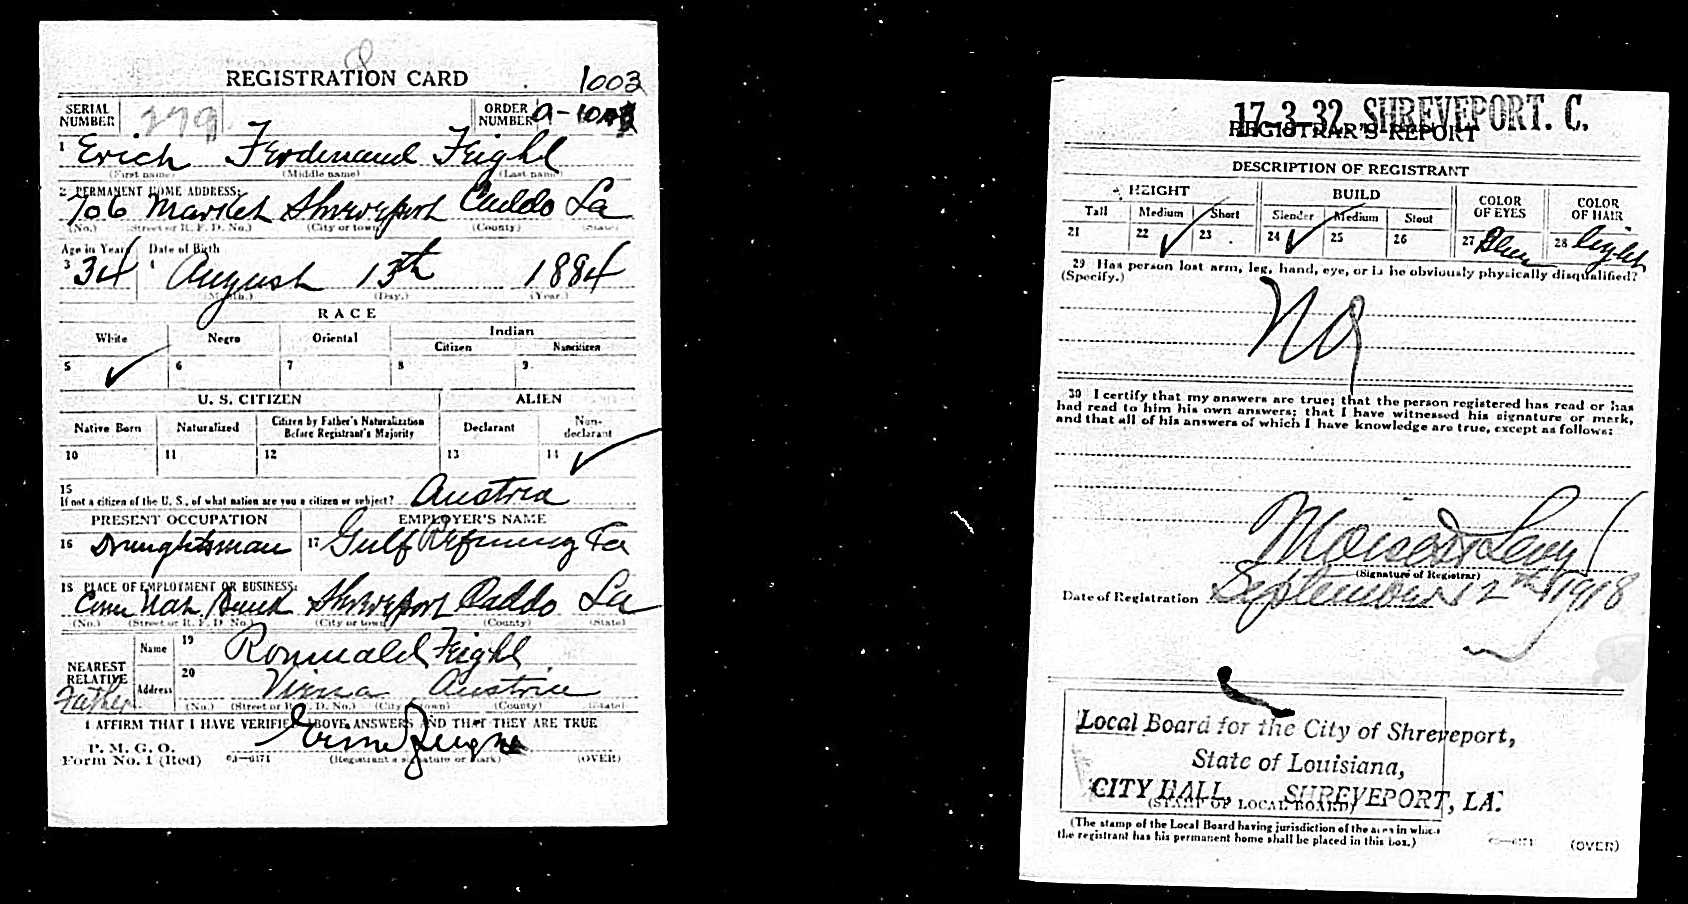 REGISTRATION CARD 1003
SERIAL NUMBER 279 ORDER NUMBER A-1003
1 Erich Ferdinand Feighl
(First name) (Middle name) (Last name)
2 PERMANENT HOME ADDRESS:
706 Market Shreveport Caddo La
(No.) (Street or R. F. D. No.) (City or town) (County) (State)
Age in Years Date of Birth
3 34 4 August 13th 1884
(Month.) (Day.) (Year.)
RACE
White Negro Oriental Indian
Citizen Noncitizen
5 ✓ 6 7 8 9
U. S. CITIZEN ALIEN
Native Born Naturalized Citizen by Father's Naturalization Before Registrant's Majority Declarant Non-declarant
10 11 12 13 14 ✓
15 If not a citizen of the U. S., of what nation are you a citizen or subject? Austria
PRESENT OCCUPATION EMPLOYER'S NAME
16 Draughtsman 17 Gulf Refining Co
18 PLACE OF EMPLOYMENT OR BUSINESS:
Com Nat. Bank Shreveport Caddo La
(No.) (Street or R. F. D. No.) (City or town) (County) (State)
NEAREST RELATIVE Father
Name 19 Romuald Feighl
Address 20 Vienna Austria
(No.) (Street or R. F. D. No.) (City or town) (County) (State)
I AFFIRM THAT I HAVE VERIFIED ABOVE ANSWERS AND THAT THEY ARE TRUE
P. M. G. O.
Form No. 1 (Red) 03—6171 (Registrant's signature or mark) (OVER)
17-3-32 SHREVEPORT. C.
REGISTRAR'S REPORT
DESCRIPTION OF REGISTRANT
HEIGHT BUILD COLOR OF EYES COLOR OF HAIR
Tall Medium Short Slender Medium Stout
21 22 ✓ 23 24 ✓ 25 26 27 Blue 28 light
29 Has person lost arm, leg, hand, eye, or is he obviously physically disqualified?
(Specify.)
No
30 I certify that my answers are true; that the person registered has read or has
had read to him his own answers; that I have witnessed his signature or mark,
and that all of his answers of which I have knowledge are true, except as follows:
Levy
(Signature of Registrar)
Date of Registration September 12th 1918
Local Board for the City of Shreveport,
State of Louisiana,
CITY HALL, SHREVEPORT, LA.
(STAMP OF LOCAL BOARD)
(The stamp of the Local Board having jurisdiction of the area in which
the registrant has his permanent home shall be placed in this box.)
03—6171 (OVER)